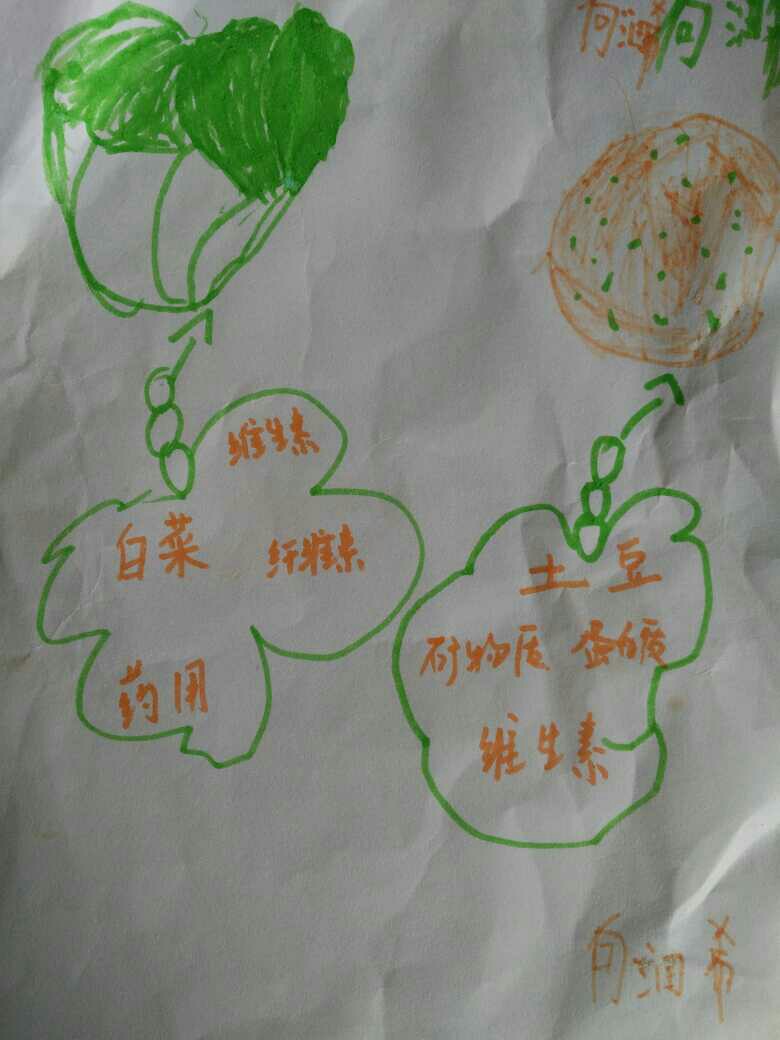 向润希 向润
维生素
白菜 纤维素
药用
土豆
矿物质 蛋白质
维生素
向润希